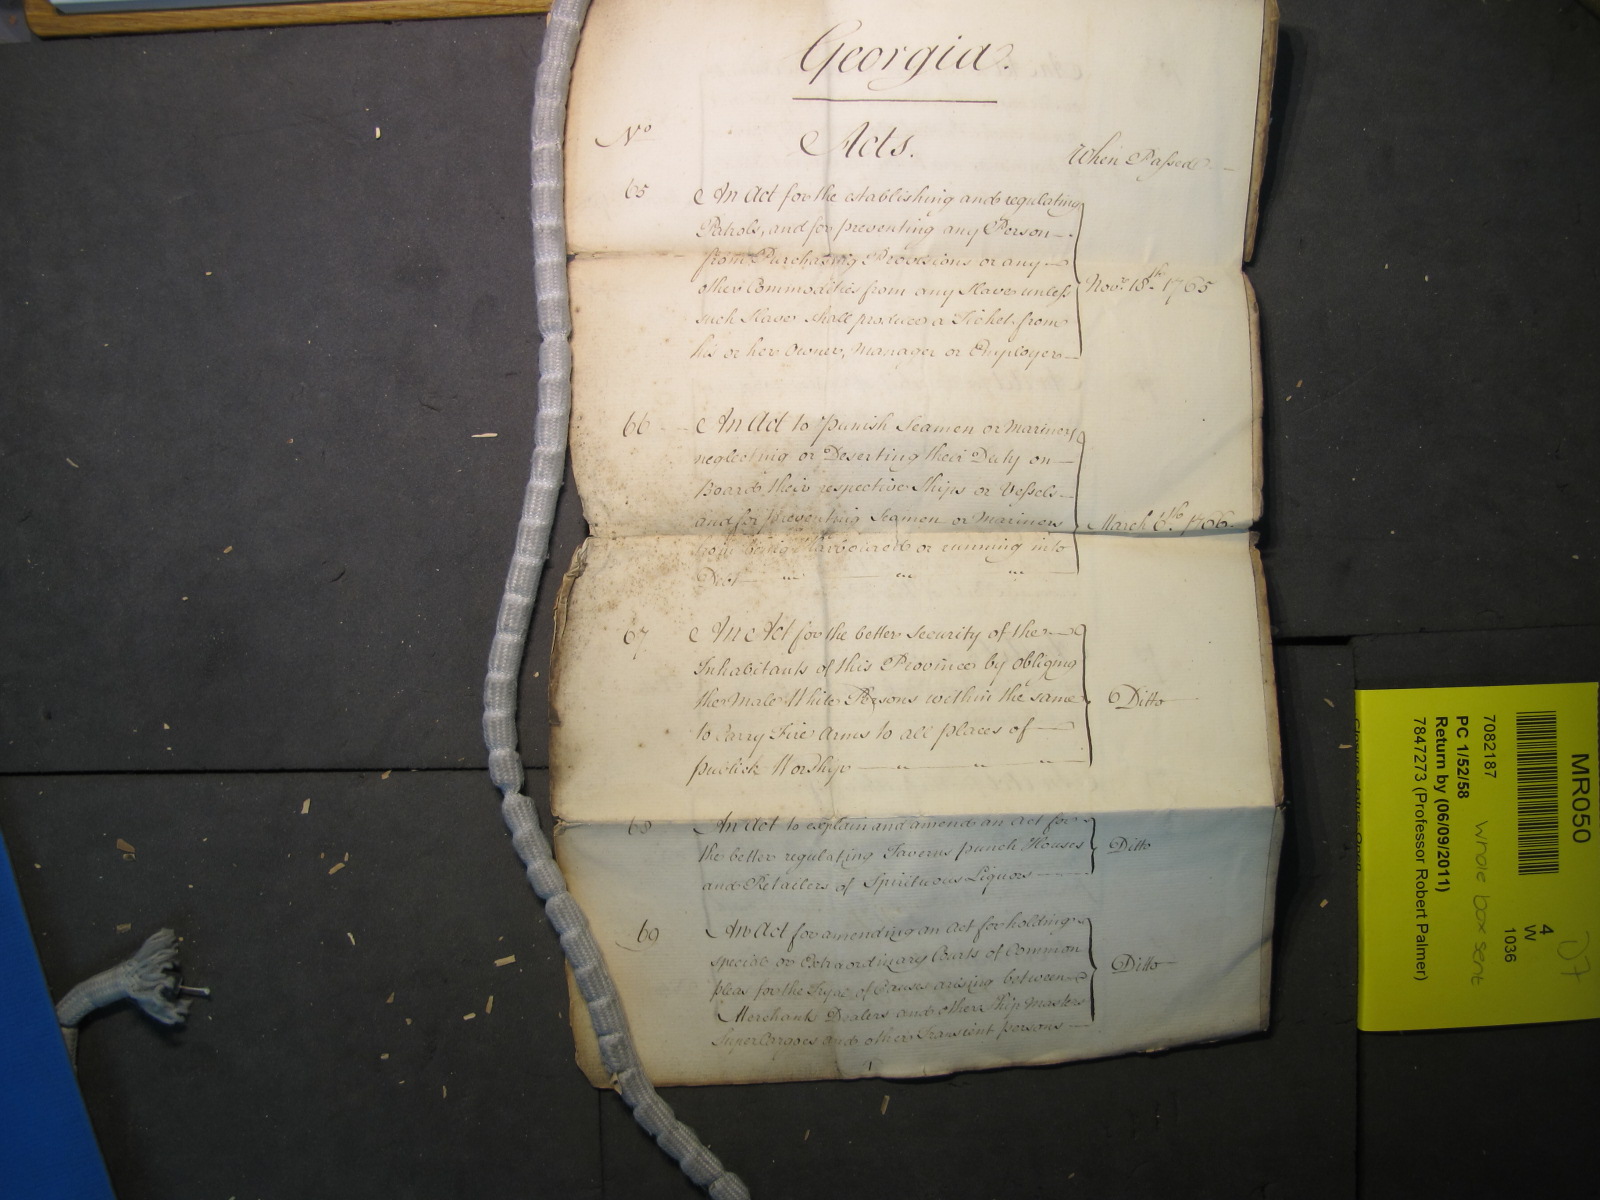 Georgia.
No Acts. When Passed
65 An Act for the establishing and regulating
Patrols, and for preventing any Person
from Purchasing Provisions or any
other Commodities from any Slave unless
such Slave shall produce a Ticket from
his or her Owner, Manager or Employer
Novr. 18th 1765
66 An Act to Punish Seamen or Mariners
neglecting or Deserting their Duty on
Board their respective Ships or Vessels
and for preventing Seamen or Mariners
from being Harboured or running into
Debt
March 6th 1766
67 An Act for the better Security of the
Inhabitants of this Province by obliging
the Male White Persons within the same
to Carry Fire Arms to all places of
publick Worship
Ditto
68 An Act to explain and amend an Act for
the better regulating Taverns punch Houses
and Retailers of Spirituous Liquors
Ditto
69 An Act for amending an Act for holding
special or Extraordinary Courts of Common
pleas for the Tryal of Causes arising between
Merchants Dealers and others Ship Masters
Supercargoes and other Transient persons
Ditto
MR050
7082187
PC 1/52/58
Return by (06/09/2011)
7847273 (Professor Robert Palmer)
4
W
1036
whole box sent